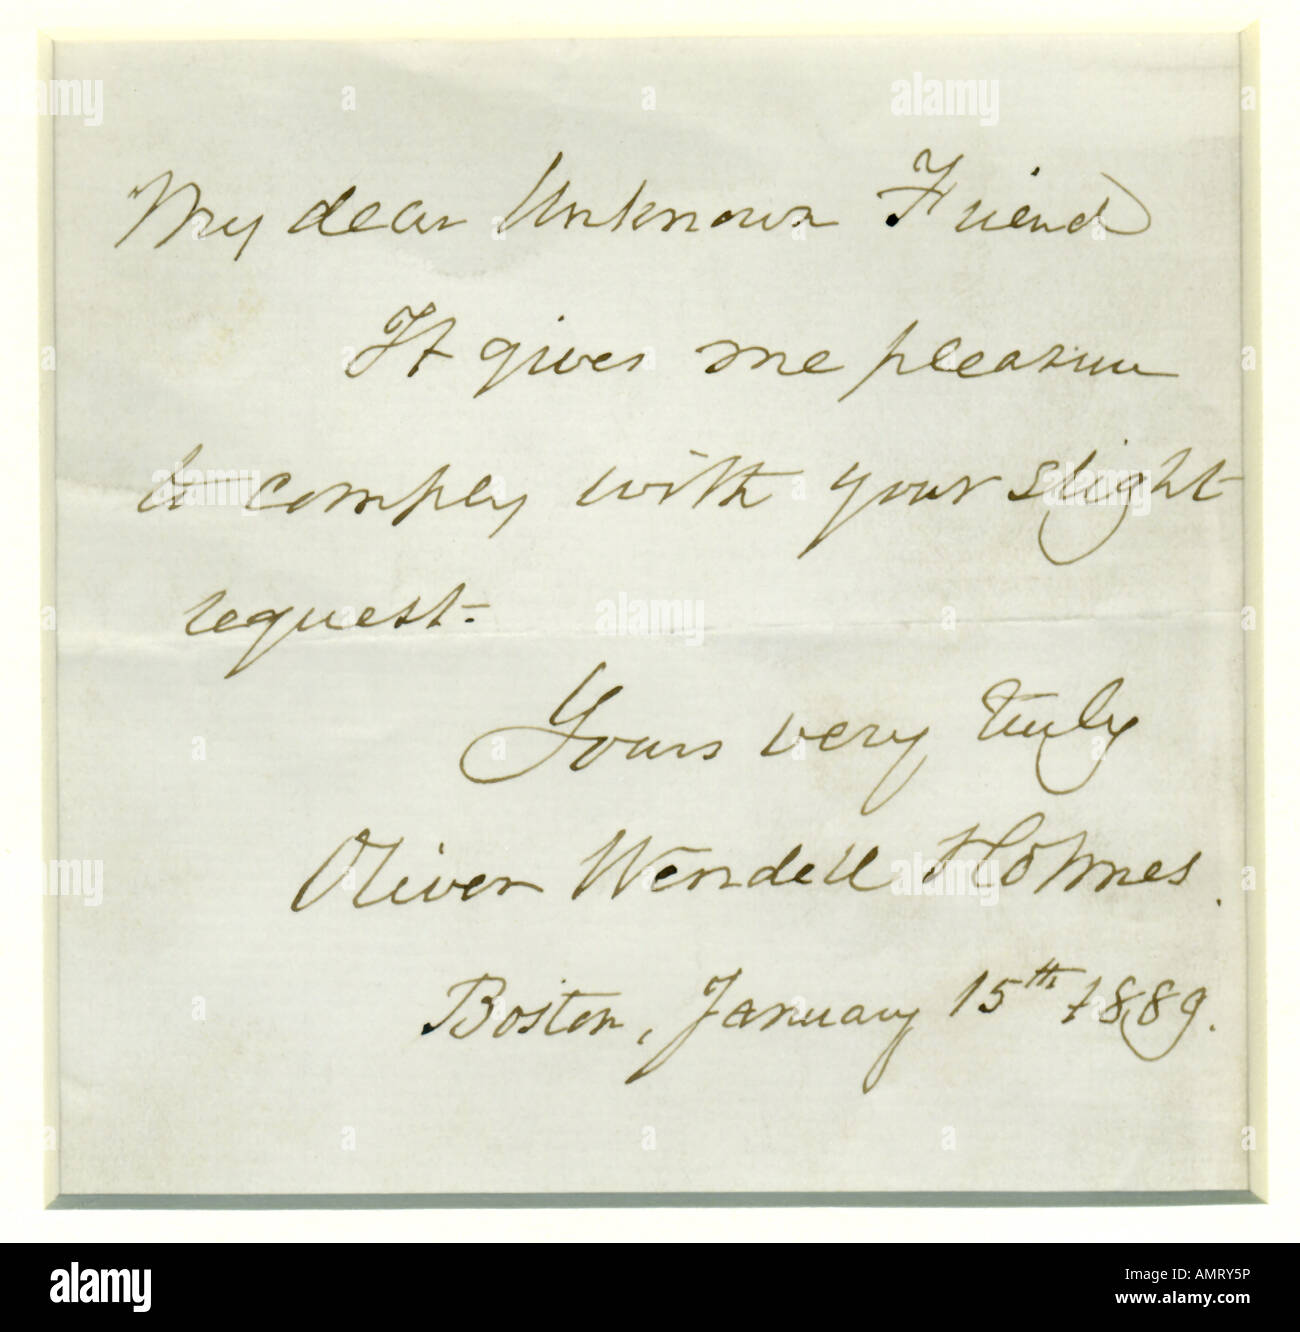 My dear Unknown Friend
It gives me pleasure
to comply with your slight
request.
Yours very truly
Oliver Wendell Holmes.
Boston, January 15th 1889.
alamy
Image ID: AMRY5P
www.alamy.com